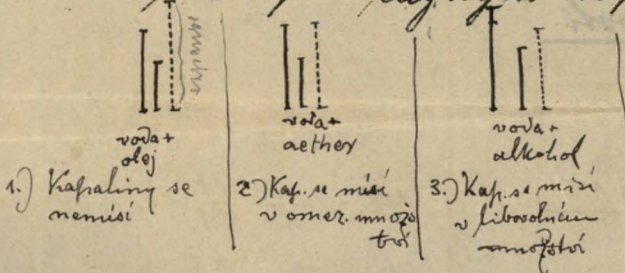 voda +
olej
1.) Kapaliny se
nemísí
voda +
aether
2.) Kap. se mísí
v omez. množs
tví
voda +
alkohol
3.) Kap. se mísí
v libovolném
množství